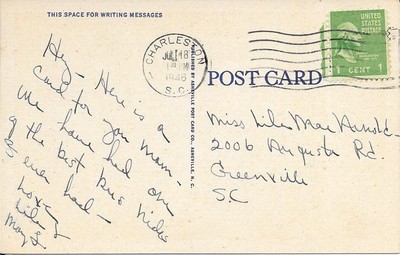 THIS SPACE FOR WRITING MESSAGES
Hey - Here is a
card for you Mam-
We have had one
of the best bus rides
I ever had -
Love
CHARLESTON
18
1946
S.C.
POST CARD
PRODUCED BY ASHEVILLE POST CARD CO., ASHEVILLE, N. C.
UNITED
STATES
POSTAGE
1 CENT 1
Miss Lila Mae Arnold-
2006 Augusta Rd.
Greenville
SC